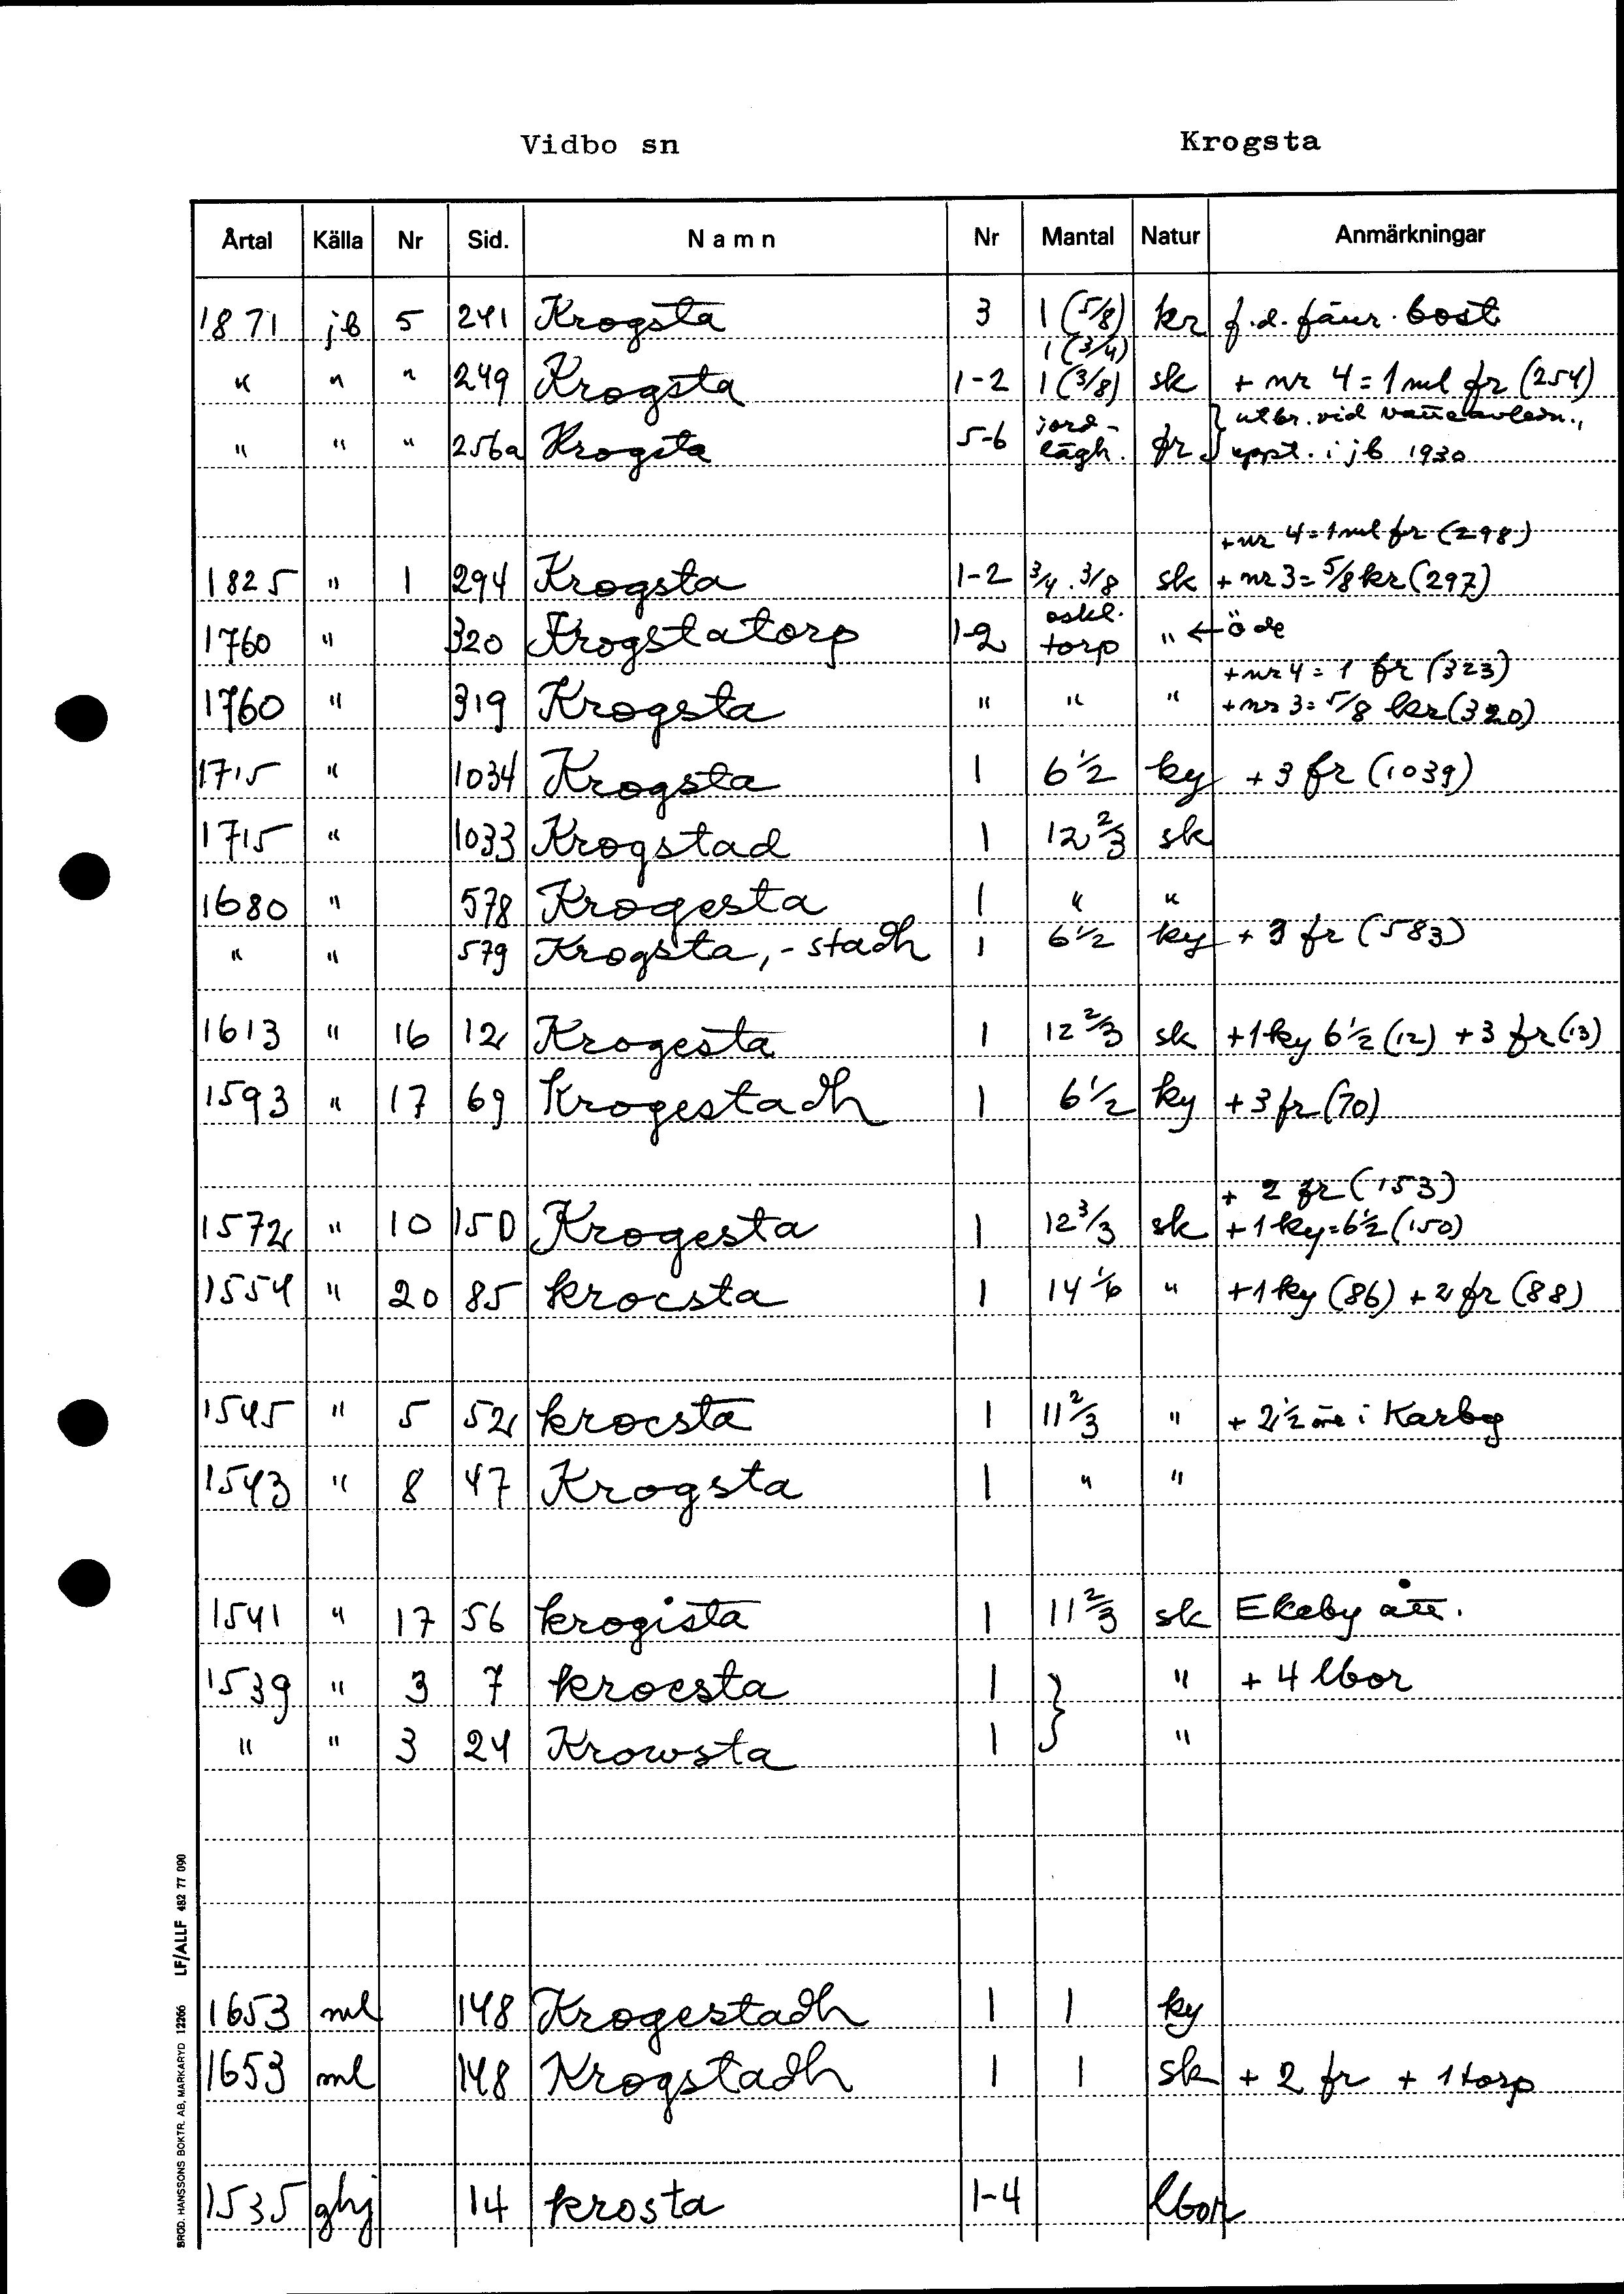 Vidbo sn Krogsta
Årtal Källa Nr Sid. Namn Nr Mantal Natur Anmärkningar
1871 jb 5 241 Krogsta 3 1 (5/8) kr f.d. fänr. bost
1 (3/4)
" " " 249 Krogsta 1-2 1 (3/8) sk + nr 4 = 1 ml fr (254)
jord- } utbr. vid
" " " 256a Krogsta 5-6 lägh. fr uppt. i jb 1930
+ nr 4 = 1 ml fr (298)
1825 " 1 294 Krogsta 1-2 3/4 . 3/8 sk + nr 3 = 5/8 kr (297)
oskl.
1760 " 320 Krogstatorp 1-2 torp " ← öde
+ nr 4 = 1 fr (323)
1760 " 319 Krogsta " " " + nr 3 = 5/8 kr (320)
1715 " 1034 Krogsta 1 6 1/2 ky + 3 fr (1039)
1715 " 1033 Krogstad 1 12 2/3 sk
1680 " 578 Krogesta 1 " "
" " 579 Krogsta, -stadh 1 6 1/2 ky + 3 fr (583)
1613 " 16 12 Krogesta 1 12 2/3 sk + 1 ky 6 1/2 (12) + 3 fr (13)
1593 " 17 69 Krogestadh 1 6 1/2 ky + 3 fr (70)
+ 2 fr (153)
1572 " 10 150 Krogesta 1 12 3/3 sk + 1 ky = 6 1/2 (150)
1554 " 20 85 krocsta 1 14 1/6 " + 1 ky (86) + 2 fr (88)
1545 " 5 52 krocsta 1 11 2/3 " + 2 1/2 öre i Karby
1543 " 8 47 Krogsta 1 " "
1541 " 17 56 krogista 1 11 2/3 sk Ekeby ått.
1539 " 3 7 krocsta 1 } " + 4 lbor
" " 3 24 Krowsta 1 "
1653 ml 148 Krogestadh 1 1 ky
1653 ml 148 Krogstadh 1 1 sk + 2 fr + 1 torp
1535 ghj 14 krosta 1-4 lbor
BROD. HANSSONS BOKTR. AB, MARKARYD 12266 LF/ALLF 482 77 090